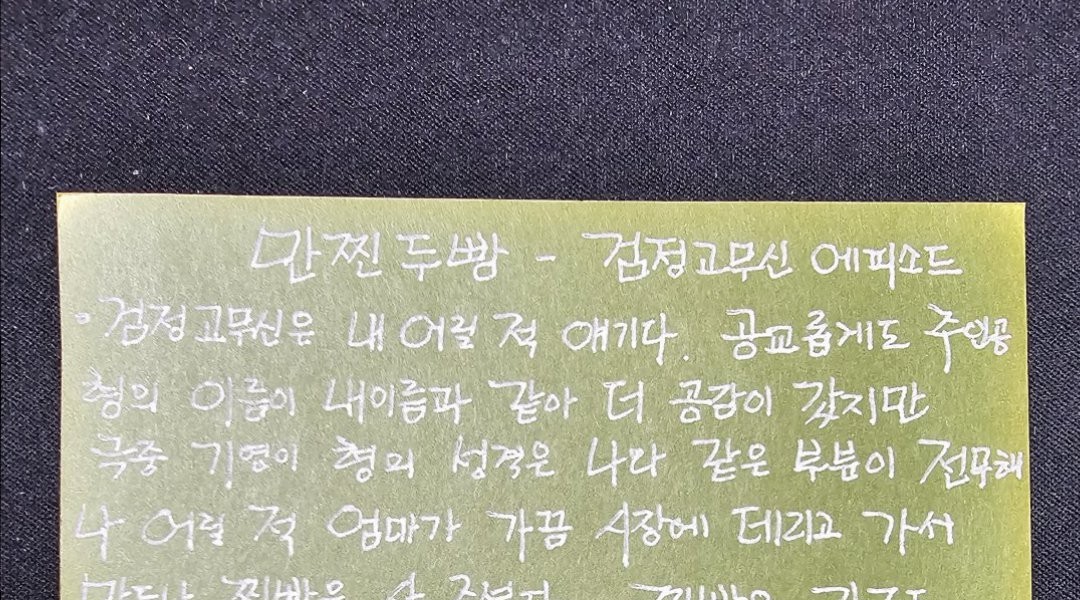 만찐두빵 - 검정고무신 에피소드
° 검정고무신은 내 어릴 적 얘기다. 공교롭게도 주인공
형의 이름이 내이름과 같아 더 공감이 갔지만
극중 기영이 형의 성격은 나와 같은 부분이 전무해
나 어릴 적 엄마가 가끔 시장에 데리고 가서